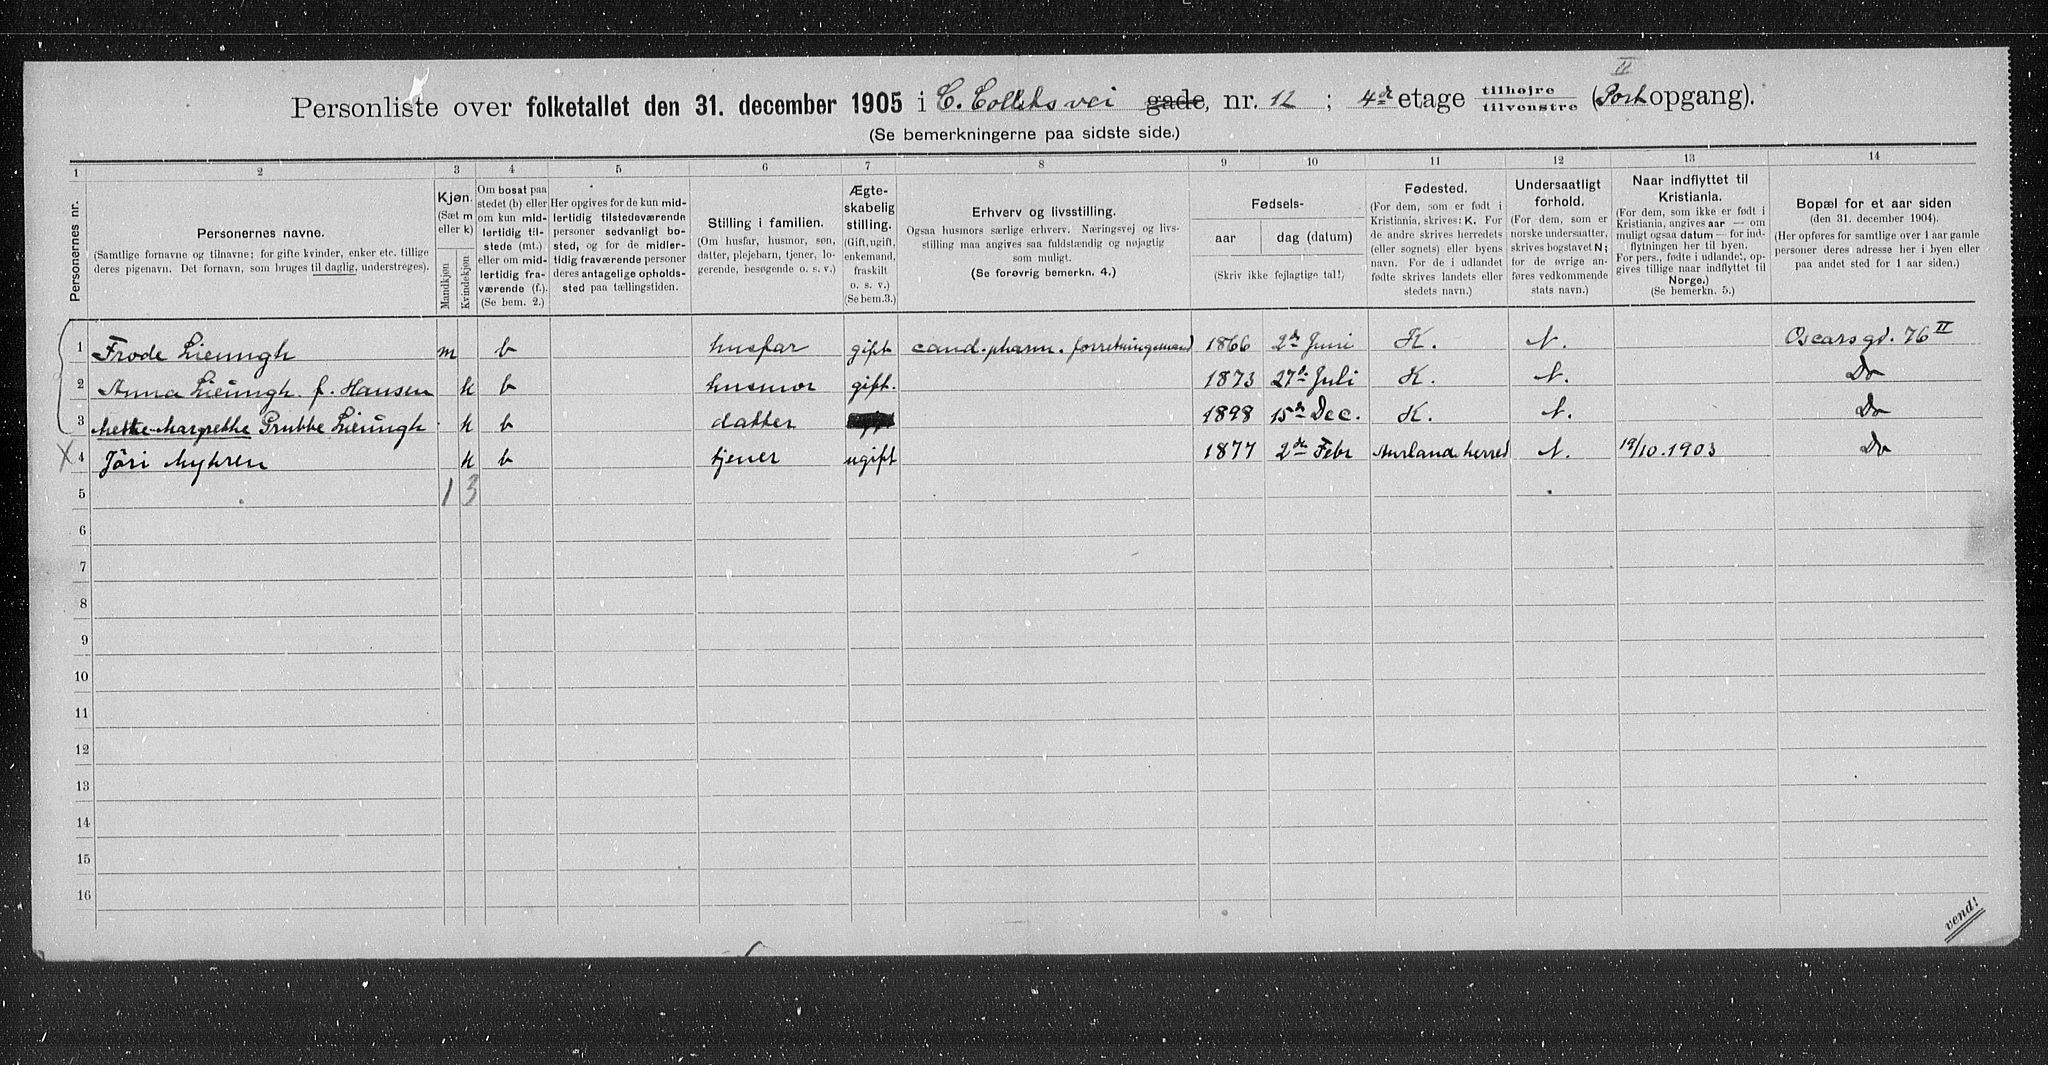 II
Personliste over folketallet den 31. december 1905 i C. Colletts vei gade, nr. 12 ; 4de etage tilhøjre tilvenstre (Port opgang).
(Se bemerkningerne paa sidste side.)
1 2 3 4 5 6 7 8 9 10 11 12 13 14
Personernes nr.
Personernes navne.
(Samtlige fornavne og tilnavne; for gifte kvinder, enker etc. tillige deres pigenavn. Det fornavn, som bruges til daglig, understreges).
Kjøn.
(Sæt m eller k)
Mandkjøn
Kvindekjøn
Om bosat paa stedet (b) eller om kun midlertidig tilstede (mt.) eller om midlertidig fraværende (f.). (Se bem. 2.)
Her opgives for de kun midlertidig tilstedeværende personer sedvanligt bosted, og for de midlertidig fraværende personer deres antagelige opholdssted paa tællingstiden.
Stilling i familien.
(Om husfar, husmor, søn, datter, plejebarn, tjener, logerende, besøgende o. s. v.)
Ægteskabelig stilling.
(Gift, ugift, enkemand, fraskilt o. s. v.)
(Se bem. 3.)
Erhverv og livsstilling.
Ogsaa husmors særlige erhverv. Næringsvej og livsstilling maa angives saa fuldstændig og nøjagtig som muligt.
(Se forøvrig bemerkn. 4.)
Fødsels-
aar
dag (datum)
(Skriv ikke fejlagtige tal!)
Fødested.
(For dem, som er født i Kristiania, skrives: K. For de andre skrives herredets (eller sognets) eller byens navn. For de i udlandet fødte skrives landets eller stedets navn.)
Undersaatligt forhold.
(For dem, som er norske undersaatter, skrives bogstavet N; for de øvrige anføres vedkommende stats navn.)
Naar indflyttet til Kristiania.
(For dem, som ikke er født i Kristiania, angives aar — om muligt ogsaa datum — for indflytningen her til byen. For pers., fødte i udlandet, opgives tillige naar indflyttet til Norge.)
(Se bemerkn. 5.)
Bopæl for et aar siden
(den 31. december 1904).
(Her opføres for samtlige over 1 aar gamle personer deres adresse her i byen eller paa andet sted for 1 aar siden.)
1 Frode Lieungh m b husfar gift cand. pharm. forretningsmand 1866 2de Juni K. N. Oscarsgd. 76 II
2 Anna Lieungh f. Hansen k b husmor gift. 1873 27de Juli K. N. Do
3 Mette Margrethe Grubbe Lieungh k b datter 1898 15de Dec. K. N. Do
X 4 Jöri Myhren k b tjener ugift 1877 2de Febr Aurland herred N. 19/10. 1903 Do
5 1 3
6
7
8
9
10
11
12
13
14
15
16
vend!